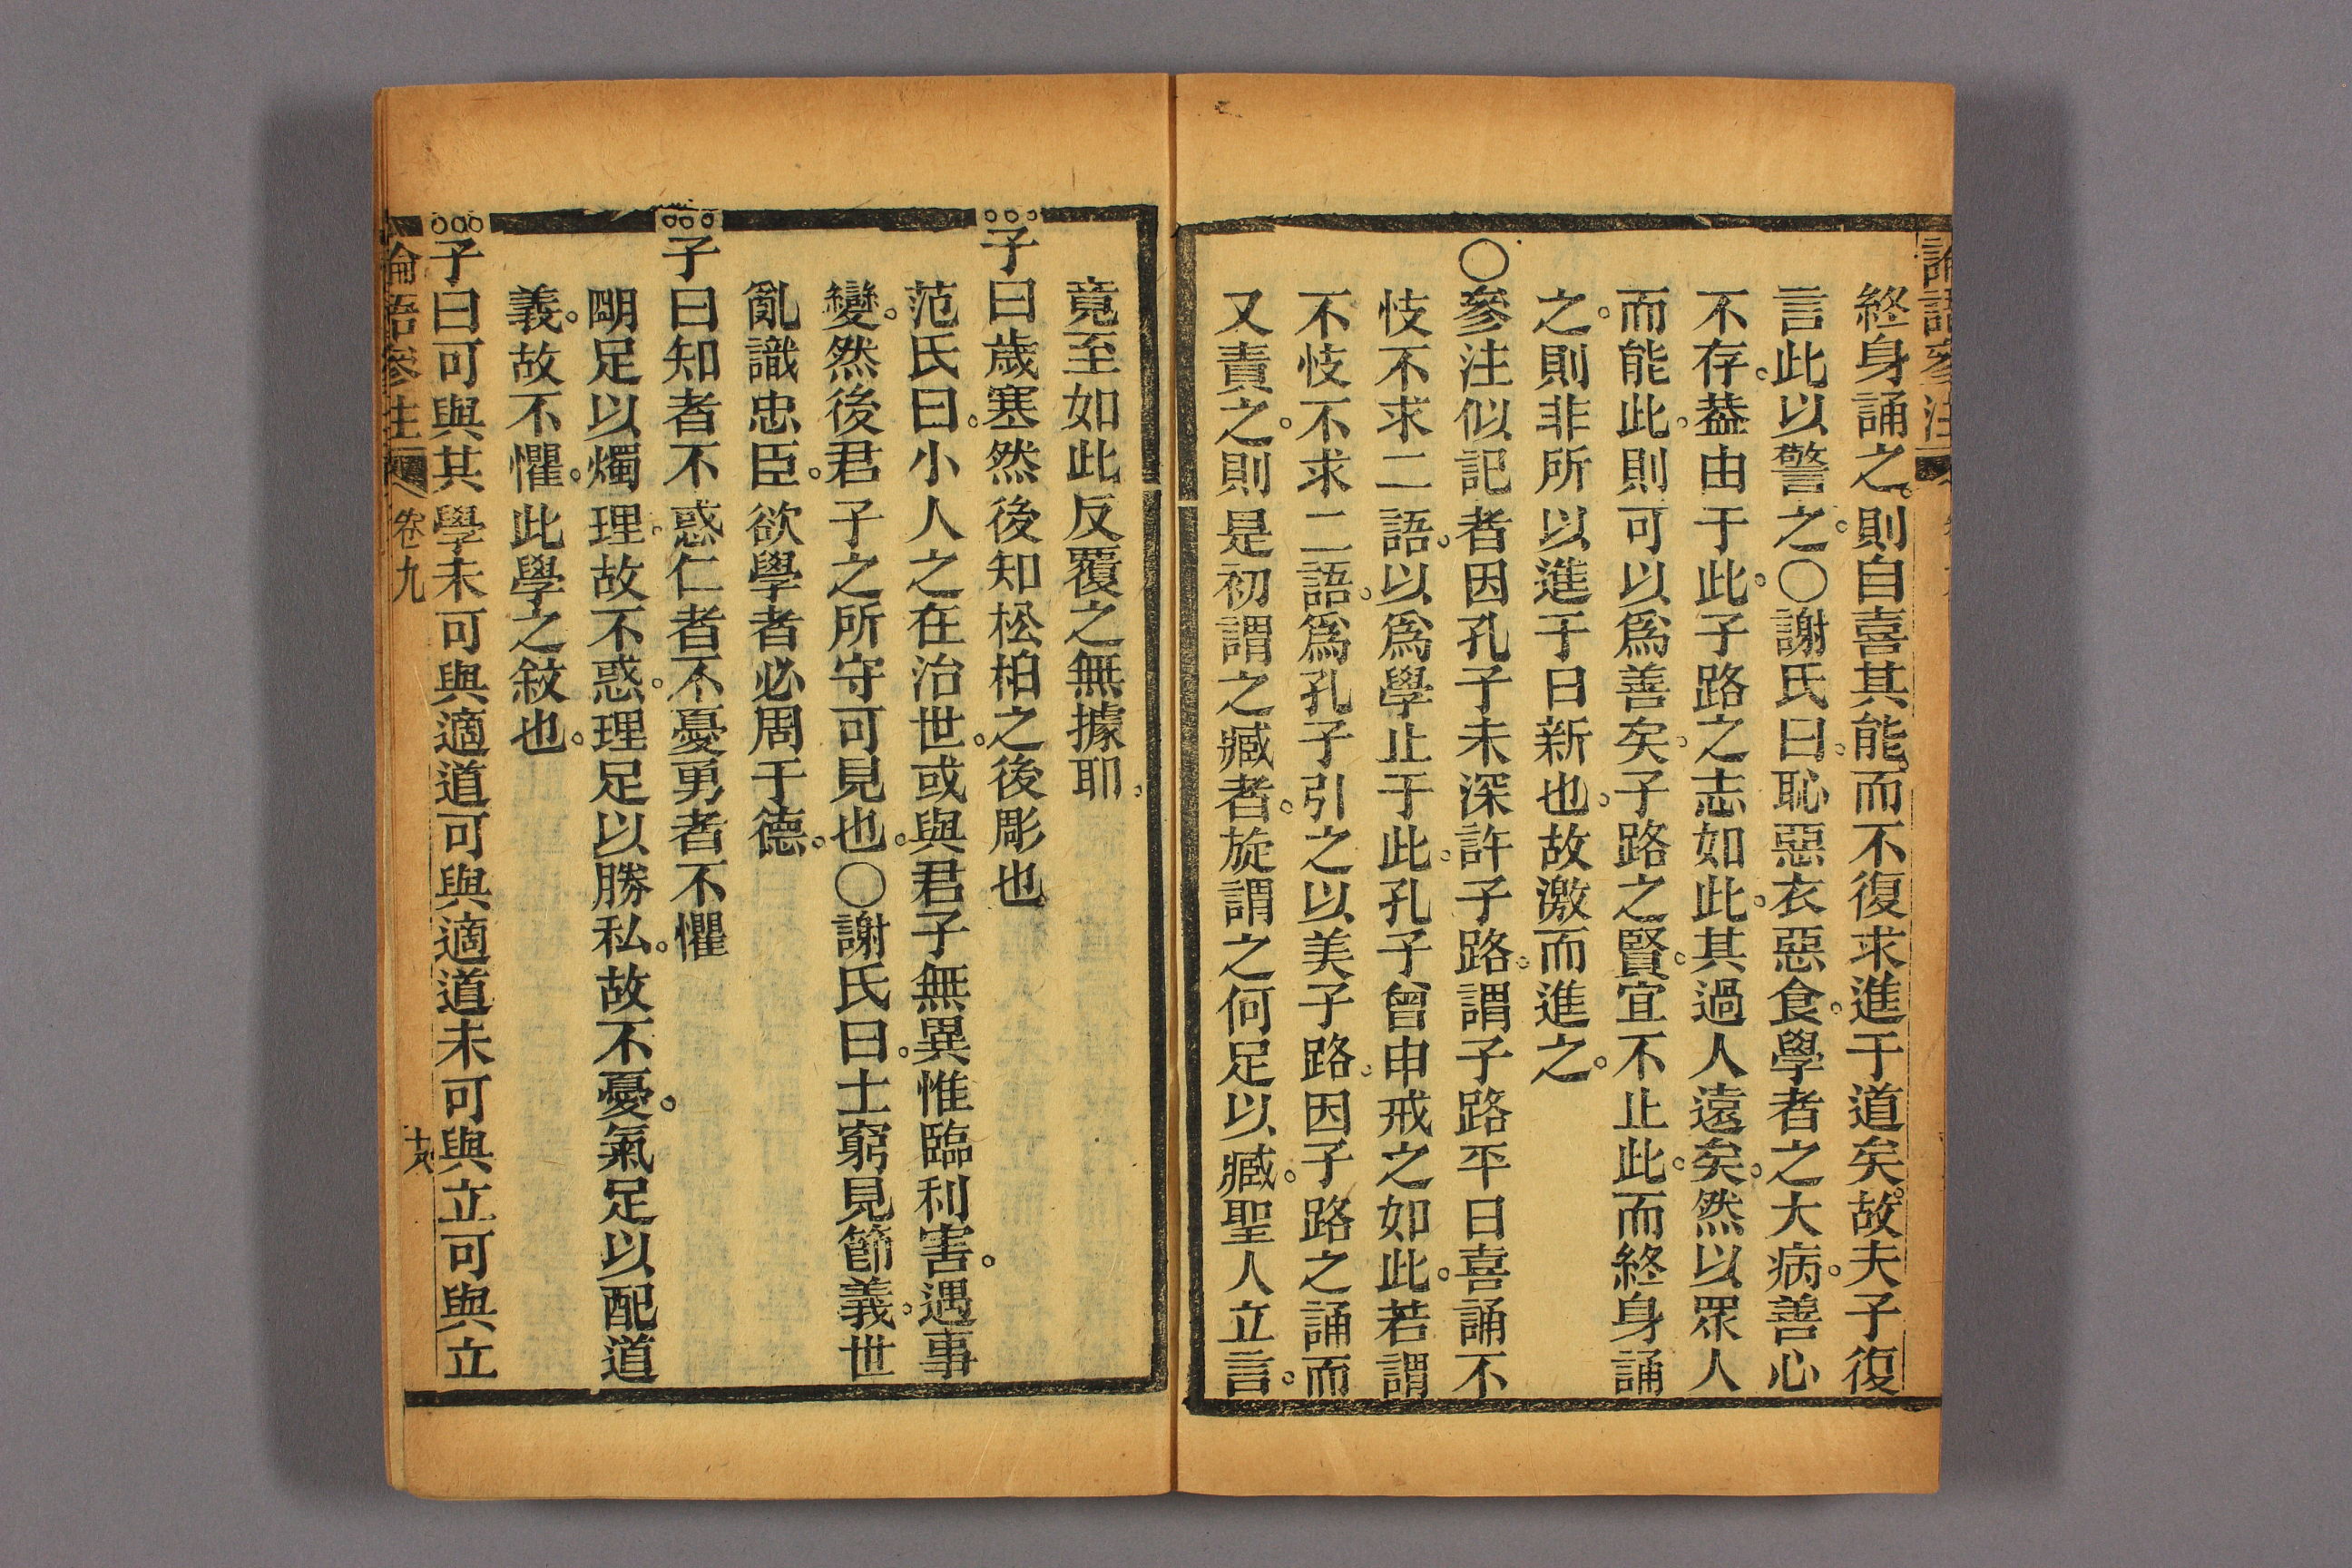 論語參注
終身誦之。則自喜其能。而不復求進于道矣。故夫子復
言此以警之。〇謝氏曰。恥惡衣惡食。學者之大病。善心
不存。葢由于此。子路之志如此。其過人遠矣。然以眾人
而能此。則可以爲善矣。子路之賢。宜不止此。而終身誦
之。則非所以進于日新也。故激而進之。
〇參注似記者因孔子未深許子路。謂子路平日喜誦不
忮不求二語。以爲學止于此。孔子曾申戒之如此。若謂
不忮不求二語。爲孔子引之以美子路。因子路之誦而
又責之。則是初謂之臧者。旋謂之何足以臧。聖人立言。
竟至如此反覆之無據耶。
子曰歲寒然後知松柏之後彫也。
范氏曰。小人之在治世。或與君子無異惟臨利害。遇事
變。然後君子之所守可見也。〇謝氏曰。士窮見節義。世
亂識忠臣。欲學者必周于德。
子曰知者不惑仁者不憂勇者不懼
朙足以燭理。故不惑。理足以勝私。故不憂。氣足以配道
義。故不懼。此學之敘也。
子曰可與共學未可與適道可與適道未可與立可與立
論語參注 卷九 十八